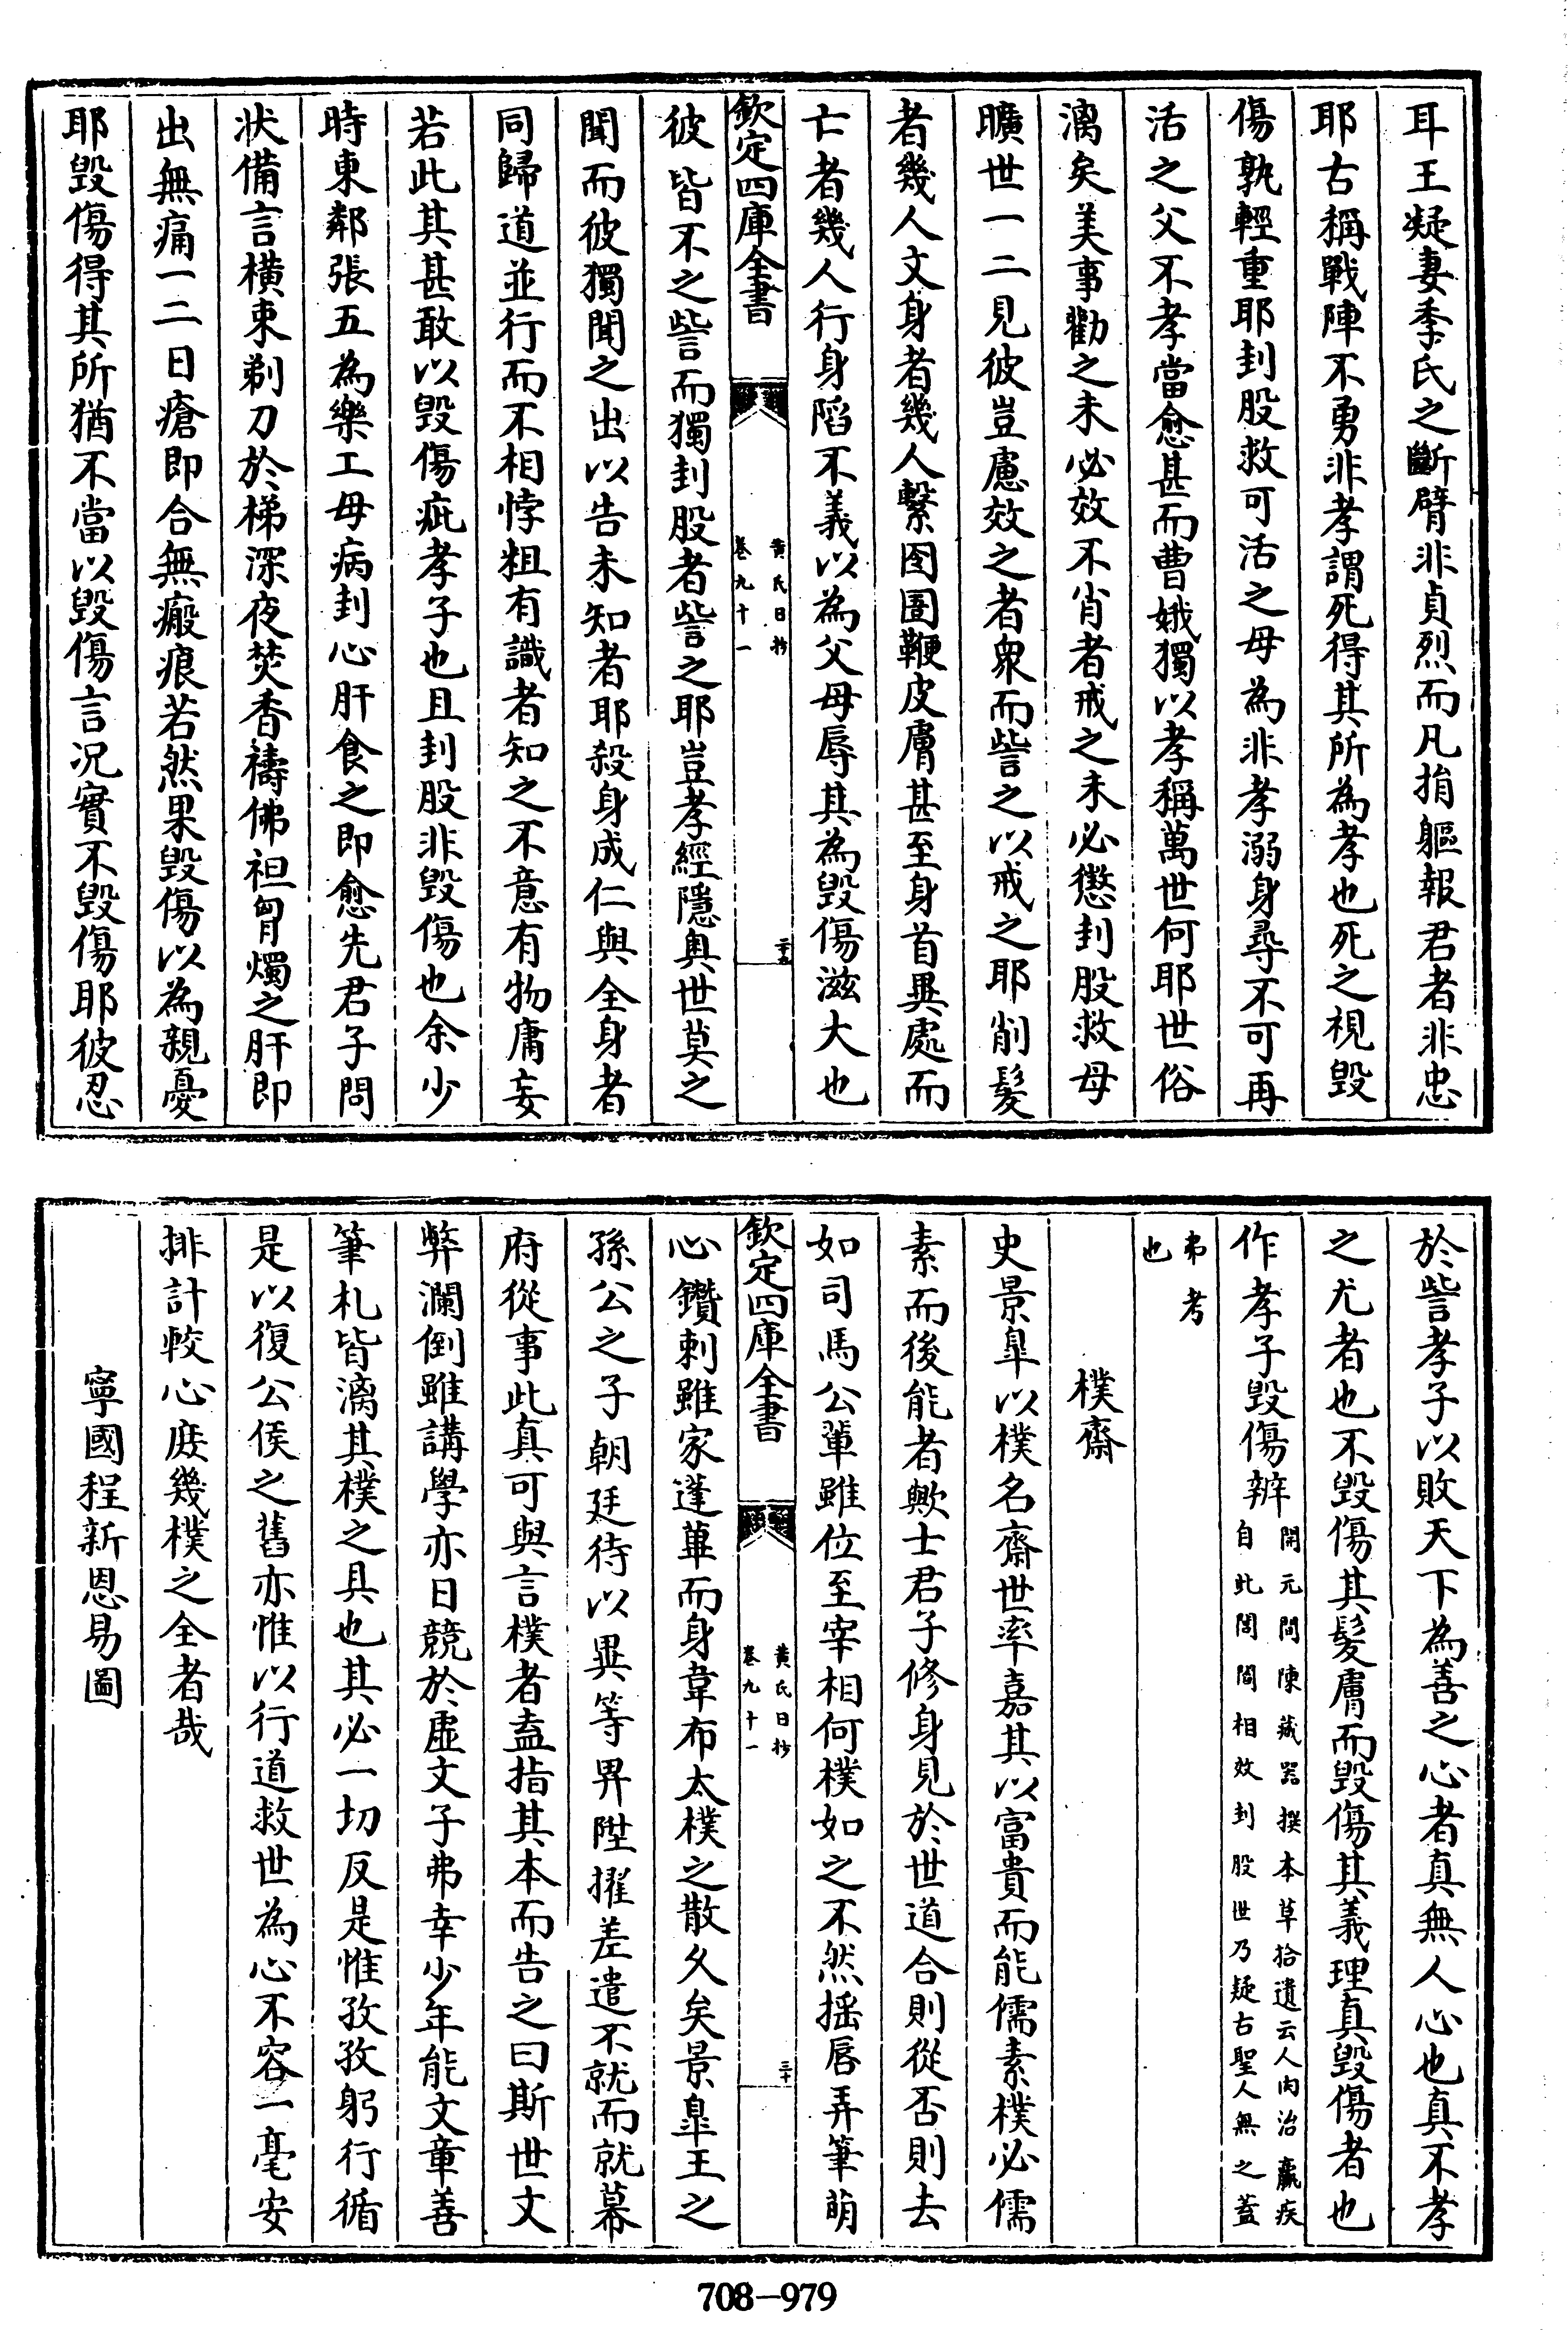 耳王凝妻李氏之斷臂非貞烈而凡捐軀報君者非忠
耶古稱戰陣不勇非孝謂死得其所為孝也死之視毀
傷孰輕重耶刲股救可活之母為非孝溺身尋不可再
活之父不孝當愈甚而曹娥獨以孝稱萬世何耶世俗
漓矣美事勸之未必效不肖者戒之未必懲刲股救母
曠世一二見彼豈慮效之者衆而訾之以戒之耶削髮
者幾人文身者幾人繫囹圄鞭皮膚甚至身首異處而
亡者幾人行身陷不義以為父母辱其為毀傷滋大也
欽定四庫全書
黃氏日抄
卷九十一
二十九
彼皆不之訾而獨刲股者訾之耶豈孝經隱奧世莫之
聞而彼獨聞之出以告未知者耶殺身成仁與全身者
同歸道並行而不相悖粗有識者知之不意有物庸妄
若此其甚敢以毀傷疵孝子也且刲股非毀傷也余少
時東鄰張五為樂工母病刲心肝食之即愈先君子問
狀備言橫束剃刀於梯深夜焚香禱佛袒胷燭之肝即
出無痛一二日瘡即合無瘢痕若然果毀傷以為親憂
耶毀傷得其所猶不當以毀傷言况實不毀傷耶彼忍
於訾孝子以敗天下為善之心者真無人心也真不孝
之尤者也不毀傷其髮膚而毀傷其義理真毀傷者也
作孝子毀傷辨開元間陳藏器撰本草拾遺云人肉治羸疾
自此閭閻相效刲股世乃疑古聖人無之蓋
弗考
也
樸齋
史景臯以樸名齋世率嘉其以富貴而能儒素樸必儒
素而後能者歟士君子修身見於世道合則從否則去
如司馬公輩雖位至宰相何樸如之不然摇唇弄筆萌
欽定四庫全書
黃氏日抄
卷九十一
三十
心鑽刺雖家蓬蓽而身韋布太樸之散久矣景臯王之
孫公之子朝廷待以異等畀陞擢差遣不就而就幕
府從事此真可與言樸者盍指其本而告之曰斯世文
弊瀾倒雖講學亦日競於虛文子弗幸少年能文章善
筆札皆漓其樸之具也其必一切反是惟孜孜躬行循
是以復公侯之舊亦惟以行道救世為心不容一毫安
排計較心庻幾樸之全者哉
寧國程新恩易圖
708-979